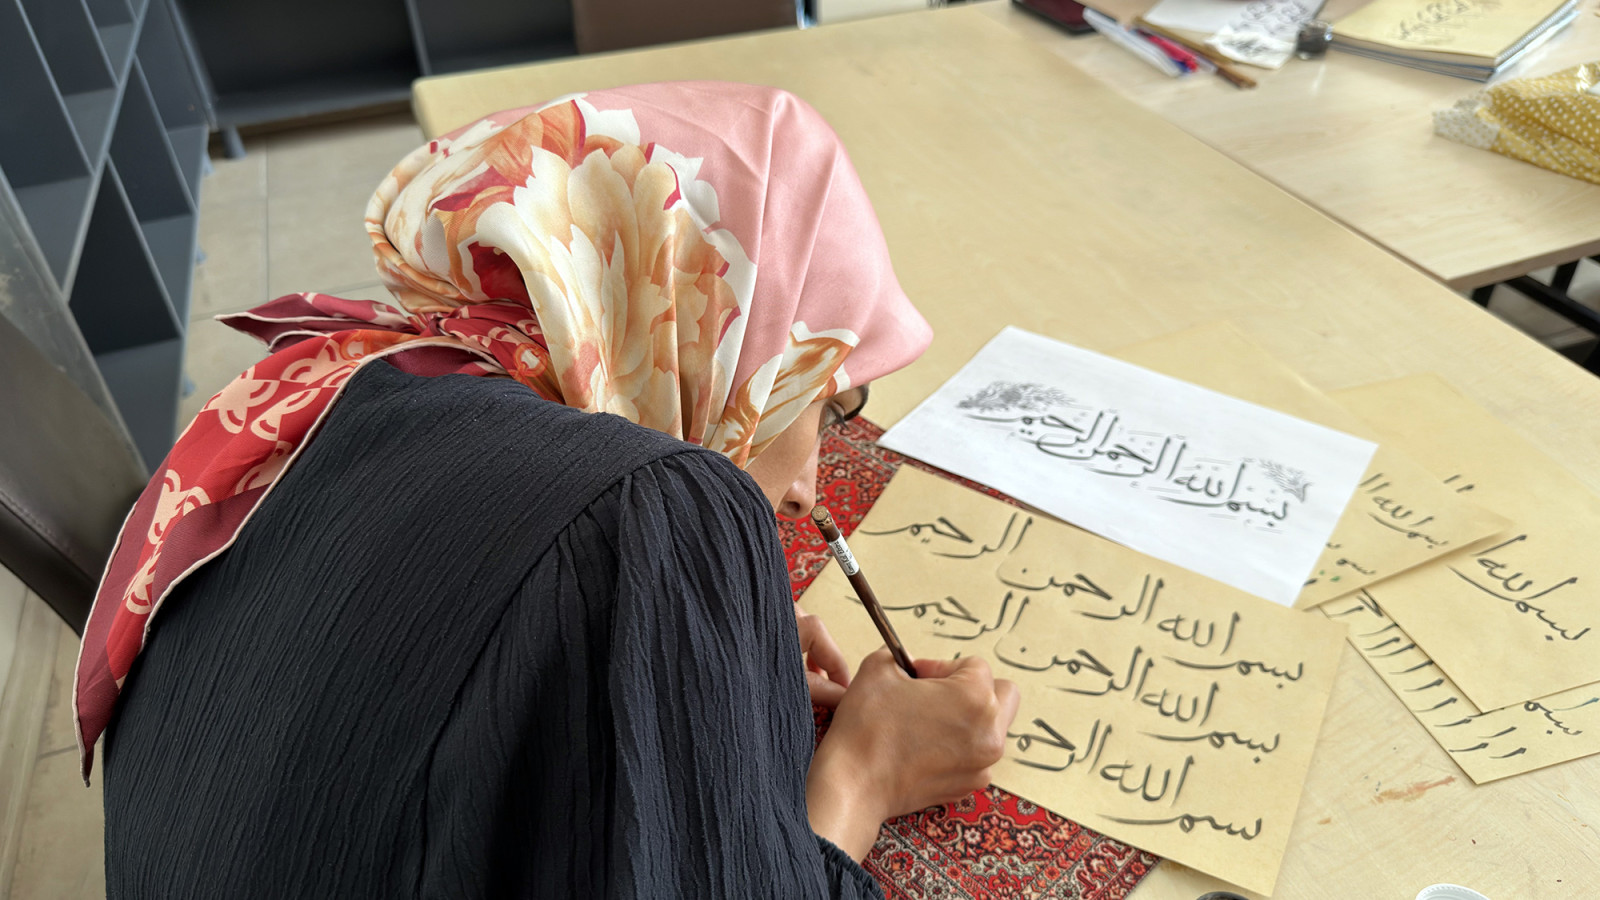 بسم الله الرحمن الرحيم
بسم الله الرحمن الرحيم
بسم الله الرحمن الرحيم
بسم الله الرحمن
بسم الله
بسم الله
بسم